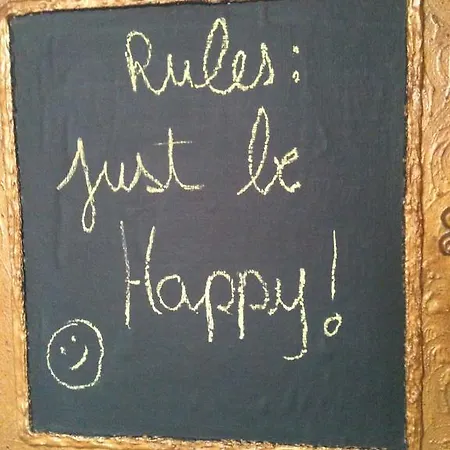 Rules:
just be
Happy!